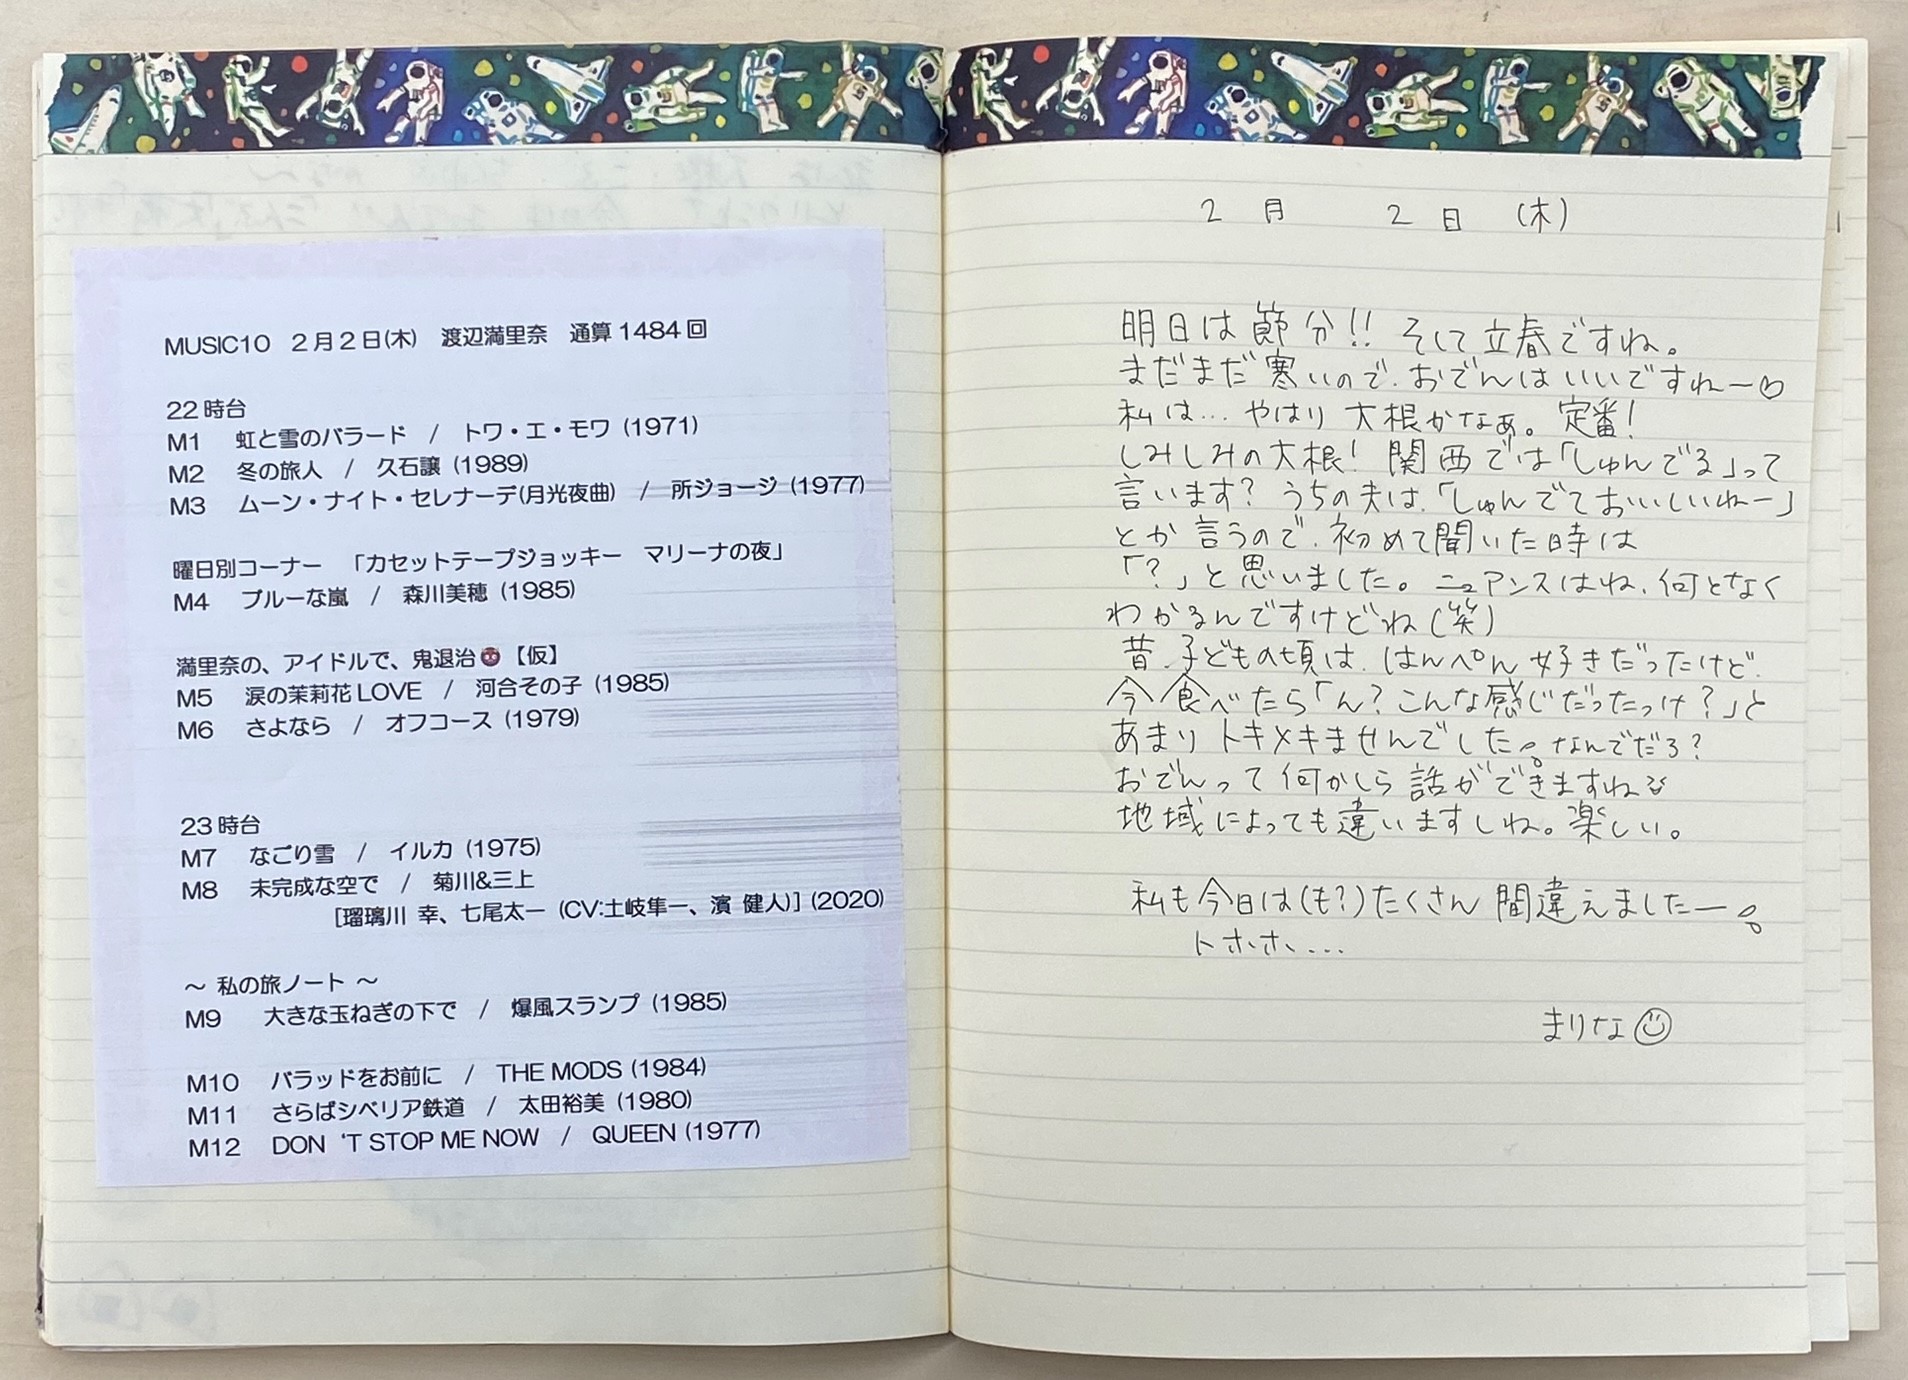 MUSIC10　2月2日(木)　渡辺満里奈　通算1484回
22時台
M1　虹と雪のバラード　/　トワ・エ・モワ (1971)
M2　冬の旅人　/　久石譲 (1989)
M3　ムーン・ナイト・セレナーデ(月光夜曲)　/　所ジョージ (1977)
曜日別コーナー　「カセットテープジョッキー　マリーナの夜」
M4　ブルーな嵐　/　森川美穂 (1985)
満里奈の、アイドルで、鬼退治👹【仮】
M5　涙の茉莉花LOVE　/　河合その子 (1985)
M6　さよなら　/　オフコース (1979)
23時台
M7　なごり雪　/　イルカ (1975)
M8　未完成な空で　/　菊川&三上
[瑠璃川 幸、七尾太一 (CV:土岐隼一、濱 健人)] (2020)
～ 私の旅ノート ～
M9　大きな玉ねぎの下で　/　爆風スランプ (1985)
M10　バラッドをお前に　/　THE MODS (1984)
M11　さらばシベリア鉄道　/　太田裕美 (1980)
M12　DON ‘T STOP ME NOW　/　QUEEN (1977)
2月　2日　(木)
明日は節分!! そして立春ですね。
まだまだ寒いので、おでんはいいですねー♡
私は… やはり 大根かなぁ。定番!
しみしみの大根! 関西では「しゅんでる」って
言います? うちの夫は、「しゅんでておいしいねー」
とか言うので、初めて聞いた時は
「?」と思いました。ニュアンスはね、何となく
わかるんですけどね(笑)
昔、子どもの頃は、はんぺん好きだったけど、
今食べたら「ん? こんな感じだったっけ?」と
あまりトキメキませんでした。なんでだろ?
おでんって何かしら話ができますね
地域によっても違いますしね。楽しい。
私も今日は(も?)たくさん間違えましたー。
トホホ…
まりな☺